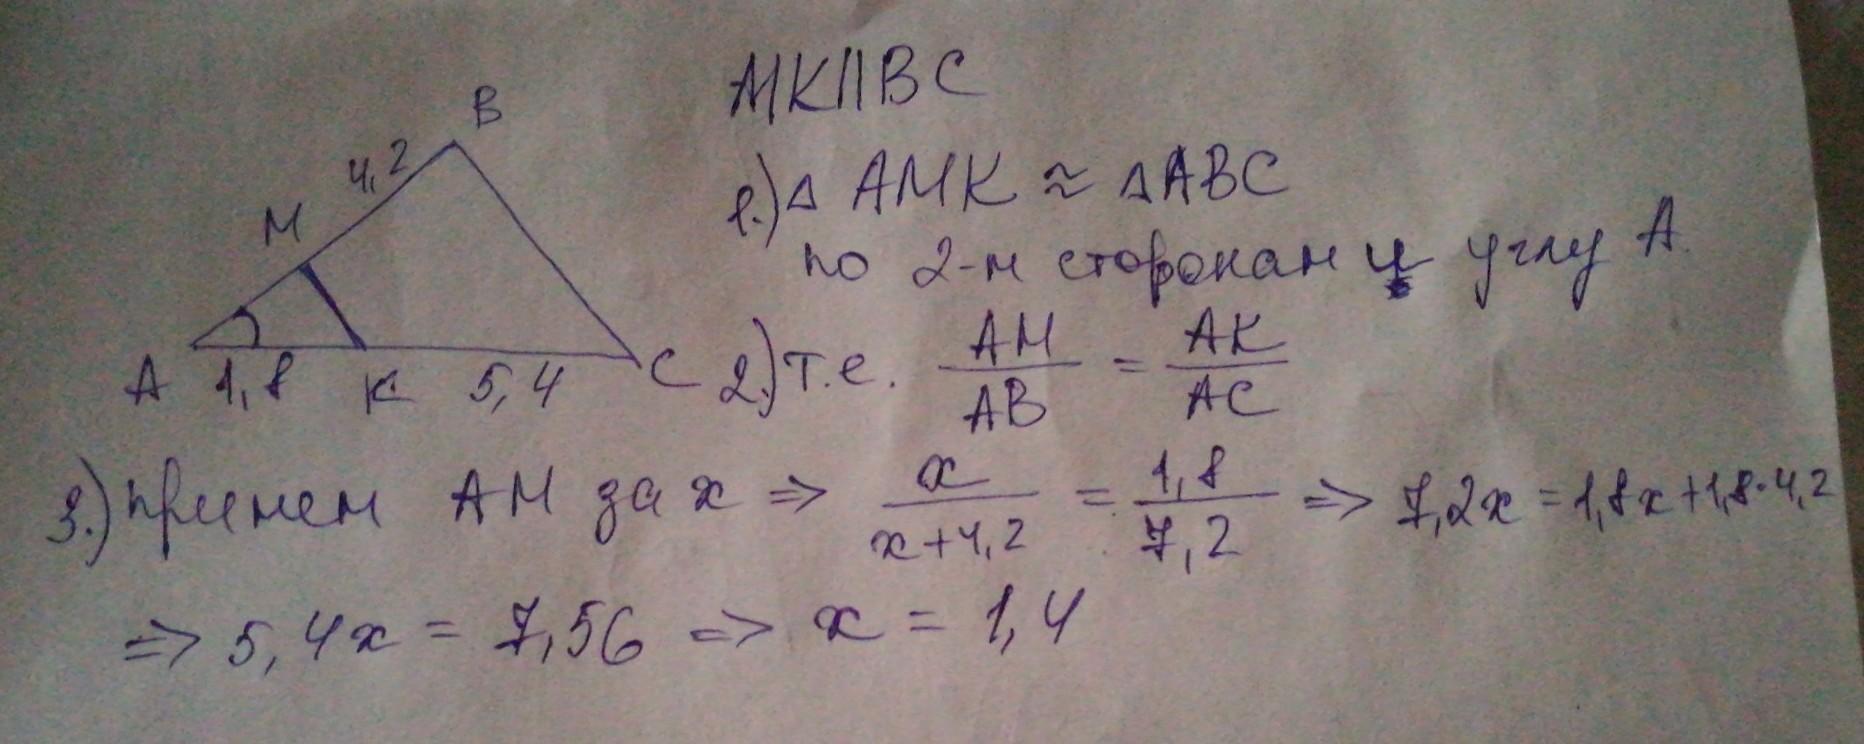 B
4,2
M
A 1,8 K 5,4 C
MK||BC
1.) △ AMK ≈ △ABC
по 2-м сторонам и углу A.
2.) т.е. AM/AB = AK/AC
3.) примем AM за x => x/(x+4,2) = 1,8/7,2 => 7,2x = 1,8x+1,8·4,2
=> 5,4x = 7,56 => x = 1,4